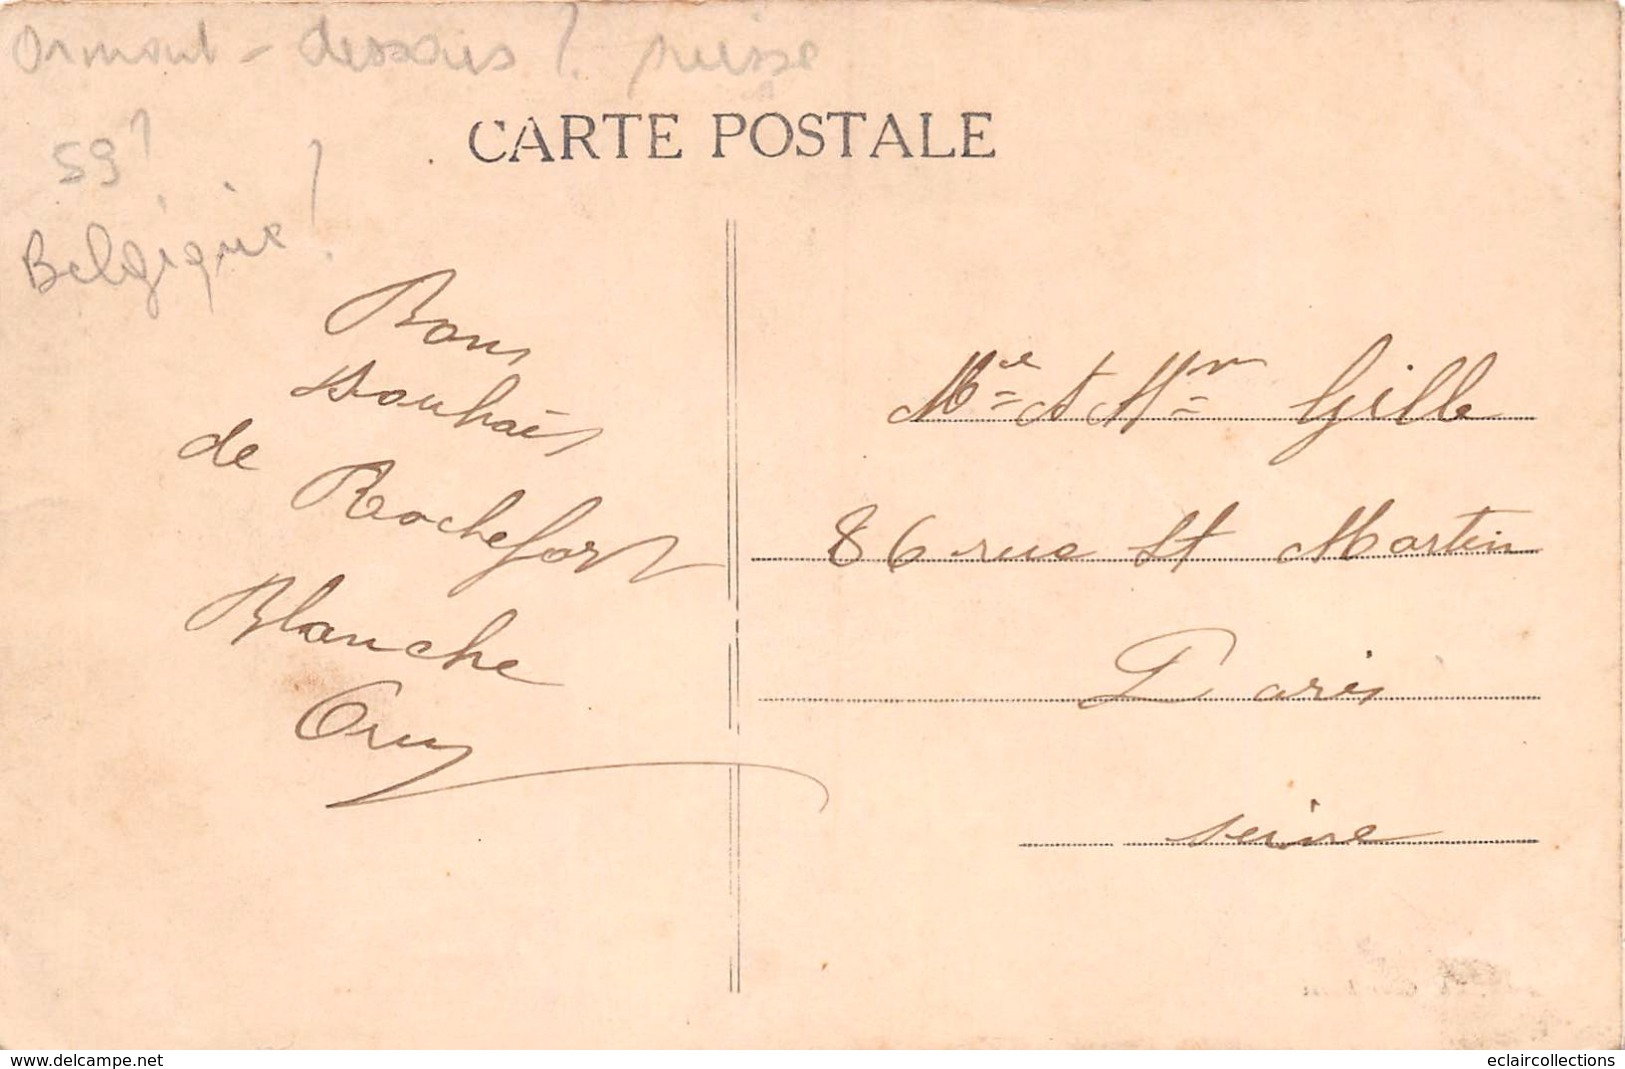 Ormont-dessous? suisse
59?
Belgique?
CARTE POSTALE
Bons
Souhaits
de Rochefort
Blanche
Mle = & Mr = Gille
86 rue St Martin
Paris
Seine
www.delcampe.net
eclaircollections